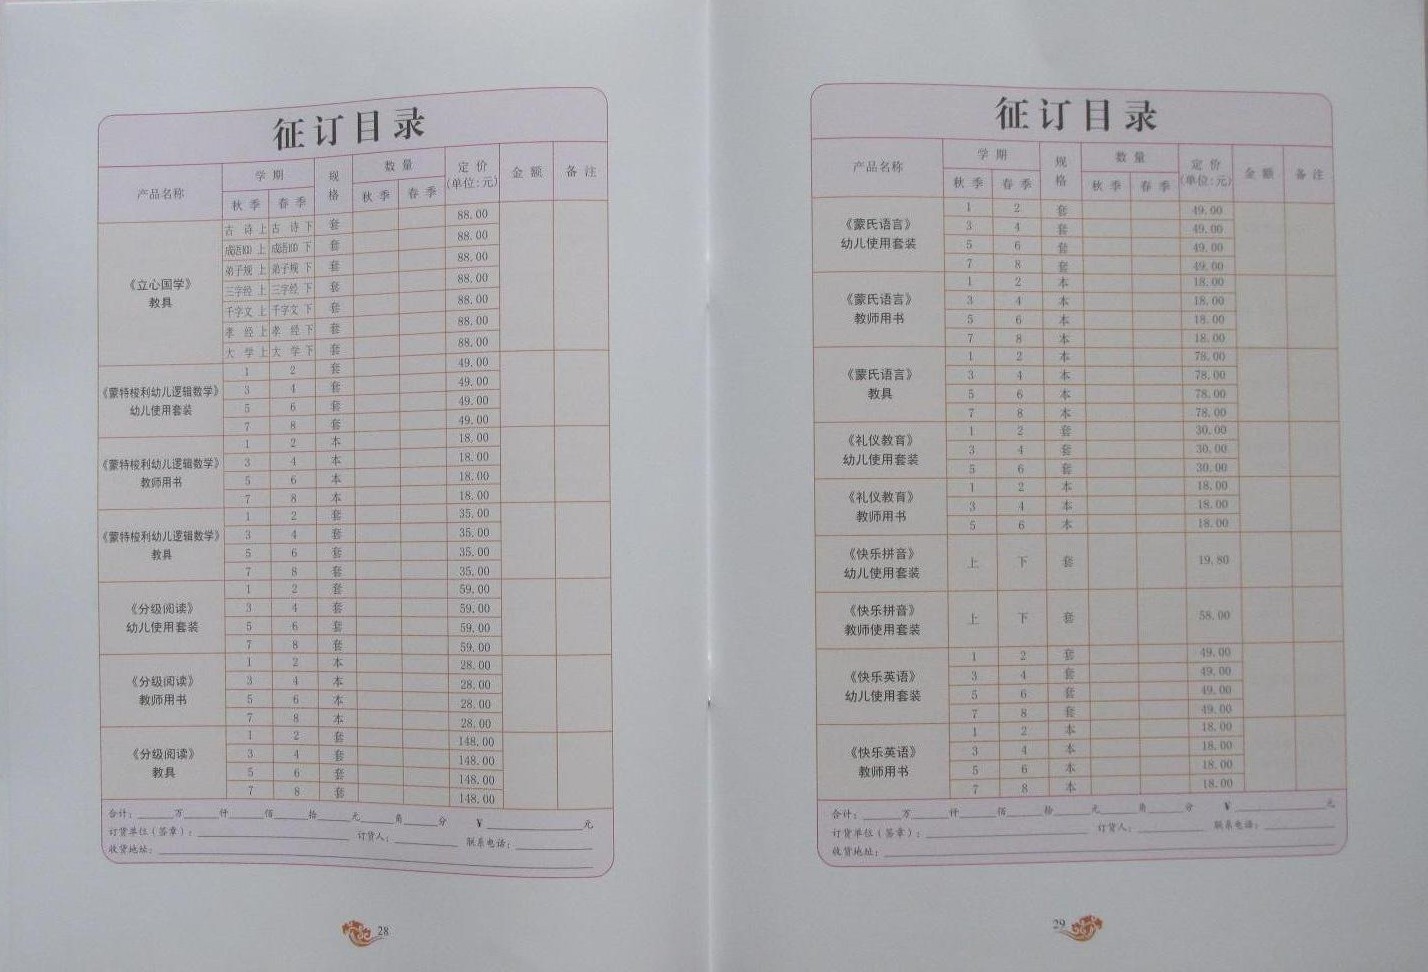 征订目录
产品名称 学期 规格 数量 定价(单位:元) 金额 备注
秋季 春季 秋季 春季
《立心国学》
教具
古诗上 古诗下 套 88.00
成语KD上 成语KD下 套 88.00
弟子规上 弟子规下 套 88.00
三字经上 三字经下 套 88.00
千字文上 千字文下 套 88.00
孝经上 孝经下 套 88.00
大学上 大学下 套 88.00
《蒙特梭利幼儿逻辑数学》
幼儿使用套装
1 2 套 49.00
3 4 套 49.00
5 6 套 49.00
7 8 套 49.00
《蒙特梭利幼儿逻辑数学》
教师用书
1 2 本 18.00
3 4 本 18.00
5 6 本 18.00
7 8 本 18.00
《蒙特梭利幼儿逻辑数学》
教具
1 2 套 35.00
3 4 套 35.00
5 6 套 35.00
7 8 套 35.00
《分级阅读》
幼儿使用套装
1 2 套 59.00
3 4 套 59.00
5 6 套 59.00
7 8 套 59.00
《分级阅读》
教师用书
1 2 本 28.00
3 4 本 28.00
5 6 本 28.00
7 8 本 28.00
《分级阅读》
教具
1 2 套 148.00
3 4 套 148.00
5 6 套 148.00
7 8 套 148.00
合计:____万____仟____佰____拾____元____角____分 ¥____元
订货单位(签章):____ 订货人:____ 联系电话:____
收货地址:____
28
征订目录
产品名称 学期 规格 数量 定价(单位:元) 金额 备注
秋季 春季 秋季 春季
《蒙氏语言》
幼儿使用套装
1 2 套 49.00
3 4 套 49.00
5 6 套 49.00
7 8 套 49.00
《蒙氏语言》
教师用书
1 2 本 18.00
3 4 本 18.00
5 6 本 18.00
7 8 本 18.00
《蒙氏语言》
教具
1 2 本 78.00
3 4 本 78.00
5 6 本 78.00
7 8 本 78.00
《礼仪教育》
幼儿使用套装
1 2 套 30.00
3 4 套 30.00
5 6 套 30.00
《礼仪教育》
教师用书
1 2 本 18.00
3 4 本 18.00
5 6 本 18.00
《快乐拼音》
幼儿使用套装
上 下 套 19.80
《快乐拼音》
教师使用套装
上 下 套 58.00
《快乐英语》
幼儿使用套装
1 2 套 49.00
3 4 套 49.00
5 6 套 49.00
7 8 套 49.00
《快乐英语》
教师用书
1 2 本 18.00
3 4 本 18.00
5 6 本 18.00
7 8 本 18.00
合计:____万____仟____佰____拾____元____角____分 ¥____元
订货单位(签章):____ 订货人:____ 联系电话:____
收货地址:____
29